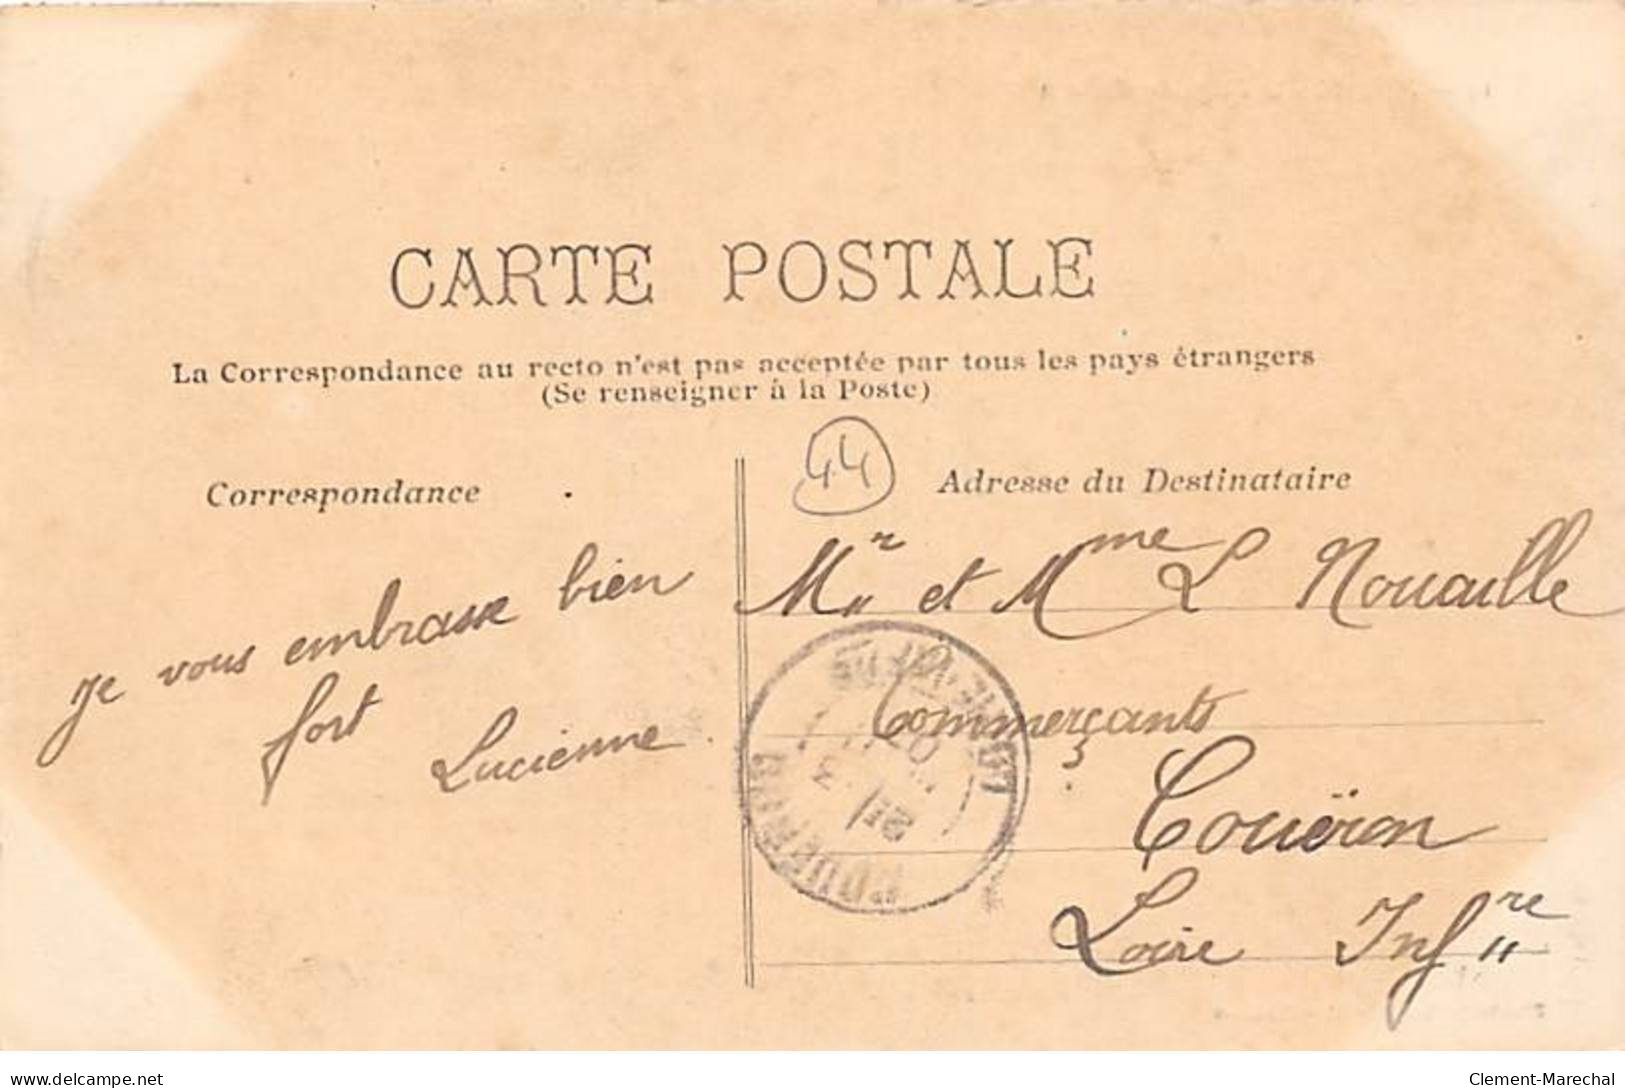 CARTE POSTALE
La Correspondance au recto n'est pas acceptée par tous les pays étrangers
(Se renseigner à la Poste)
Correspondance
Je vous embrasse bien
fort
Lucienne
44
Adresse du Destinataire
Mr et Mme L Nouaille
Commerçants
Couëron
Loire Infre
delcampe.net
Clement-Marechal